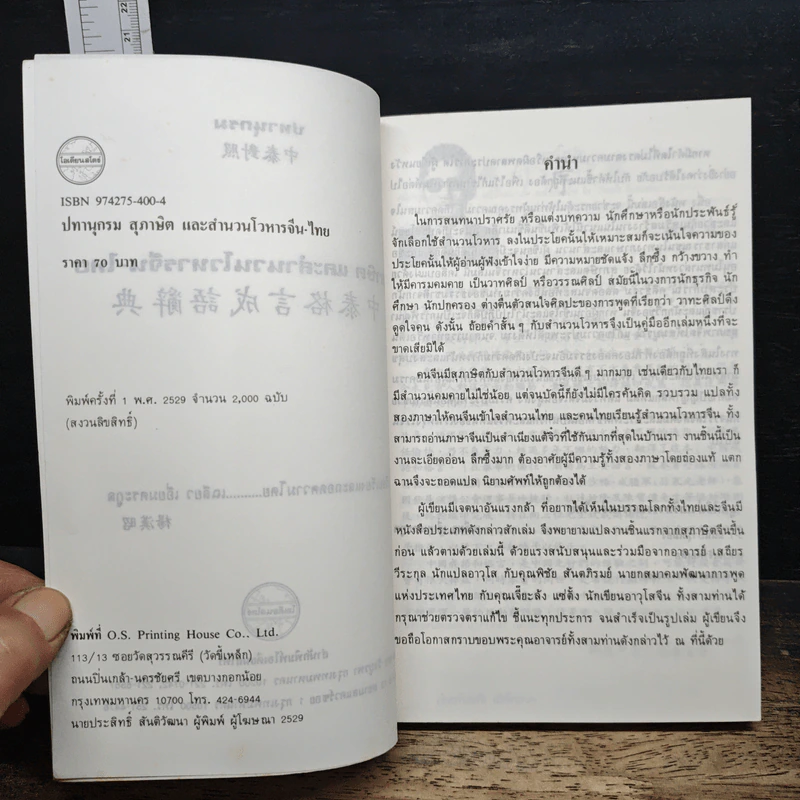 22
21
โอเดียนสโตร์
ISBN 974275-400-4
ปทานุกรม สุภาษิต และสำนวนโวหารจีน-ไทย
ราคา 70 บาท
พิมพ์ครั้งที่ 1 พ.ศ. 2529 จำนวน 2,000 ฉบับ
(สงวนลิขสิทธิ์)
พิมพ์ที่ O.S. Printing House Co., Ltd.
113/13 ซอยวัดสุวรรณคีรี (วัดขี้เหล็ก)
ถนนปิ่นเกล้า-นครชัยศรี เขตบางกอกน้อย
กรุงเทพมหานคร 10700 โทร. 424-6944
นายประสิทธิ์ สันติวัฒนา ผู้พิมพ์ ผู้โฆษณา 2529
คำนำ
ในการสนทนาปราศรัย หรือแต่งบทความ นักศึกษาหรือนักประพันธ์รู้
จักเลือกใช้สำนวนโวหาร ลงในประโยคนั้นให้เหมาะสมก็จะเน้นใจความของ
ประโยคนั้นให้ผู้อ่านผู้ฟังเข้าใจง่าย มีความหมายชัดแจ้ง ลึกซึ้ง กว้างขวาง ทำ
ให้มีคารมคมคาย เป็นวาทศิลป์ หรือวรรณศิลป์ สมัยนี้ในวงการนักธุรกิจ นัก
ศึกษา นักปกครอง ต่างตื่นตัวสนใจศิลปะของการพูดที่เรียกว่า วาทะศิลป์ดึง
ดูดใจคน ดังนั้น ถ้อยคำสั้น ๆ กับสำนวนโวหารจึงเป็นคู่มืออีกเล่มหนึ่งที่จะ
ขาดเสียมิได้
คนจีนมีสุภาษิตกับสำนวนโวหารจีนดี ๆ มากมาย เช่นเดียวกับไทยเรา ก็
มีสำนวนคมคายไม่ใช่น้อย แต่จนบัดนี้ก็ยังไม่มีใครค้นคิด รวบรวม แปลทั้ง
สองภาษาให้คนจีนเข้าใจสำนวนไทย และคนไทยเรียนรู้สำนวนโวหารจีน ทั้ง
สามารถอ่านภาษาจีนเป็นสำเนียงแต้จิ๋วที่ใช้กันมากที่สุดในบ้านเรา งานชิ้นนี้เป็น
งานละเอียดอ่อน ลึกซึ้งมาก ต้องอาศัยผู้มีความรู้ทั้งสองภาษาโดยถ่องแท้ แตก
ฉานจึงจะถอดแปล นิยามศัพท์ให้ถูกต้องได้
ผู้เขียนมีเจตนาอันแรงกล้า ที่อยากได้เห็นในบรรณโลกทั้งไทยและจีนมี
หนังสือประเภทดังกล่าวสักเล่ม จึงพยายามแปลงานชิ้นแรกจากสุภาษิตจีนขึ้น
ก่อน แล้วตามด้วยเล่มนี้ ด้วยแรงสนับสนุนและร่วมมือจากอาจารย์ เสถียร
วีระกุล นักแปลอาวุโส กับคุณพิชัย สันตภิรมย์ นายกสมาคมพัฒนาการพูด
แห่งประเทศไทย กับคุณเจี๊ยะลัง แซ่ตั้ง นักเขียนอาวุโสจีน ทั้งสามท่านได้
กรุณาช่วยตรวจตราแก้ไข ชี้แนะทุกประการ จนสำเร็จเป็นรูปเล่ม ผู้เขียนจึง
ขอถือโอกาสกราบขอบพระคุณอาจารย์ทั้งสามท่านดังกล่าวไว้ ณ ที่นี้ด้วย